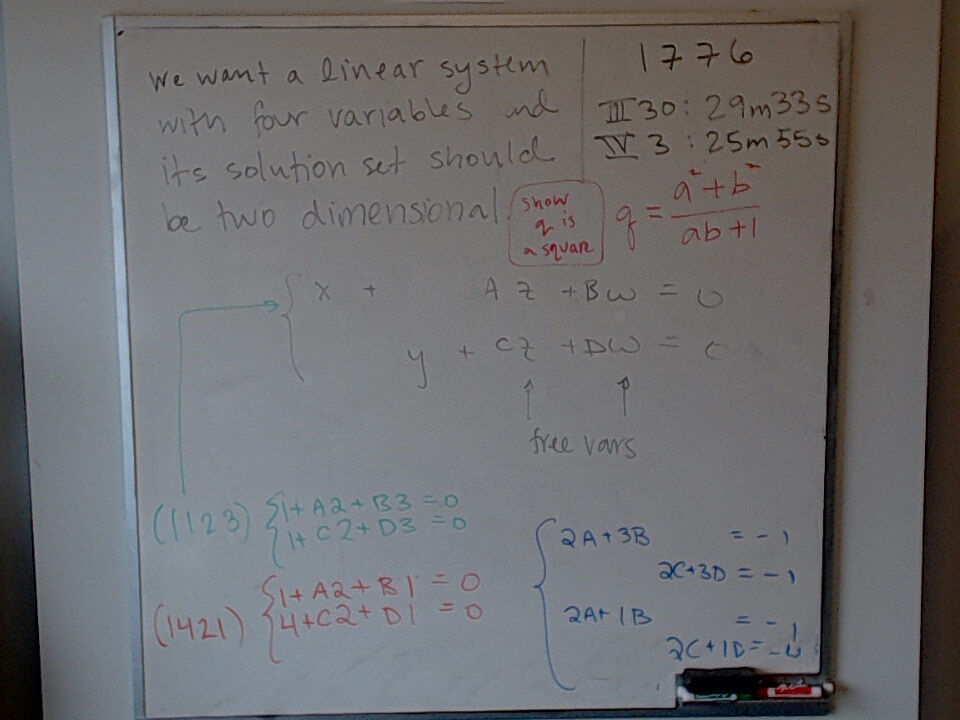 we want a linear system
with four variables and
its solution set should
be two dimensional.
1776
III 30: 29m33s
IV 3 : 25m55s
show
q is
a square
q = a² + b² / ab + 1
x + Az + Bw = 0
y + Cz + Dw = 0
free vars
(1123) { 1 + A2 + B3 = 0
1 + C2 + D3 = 0
(1421) { 1 + A2 + B1 = 0
4 + C2 + D1 = 0
{ 2A + 3B = -1
2C + 3D = -1
2A + 1B = -1
2C + 1D = -4